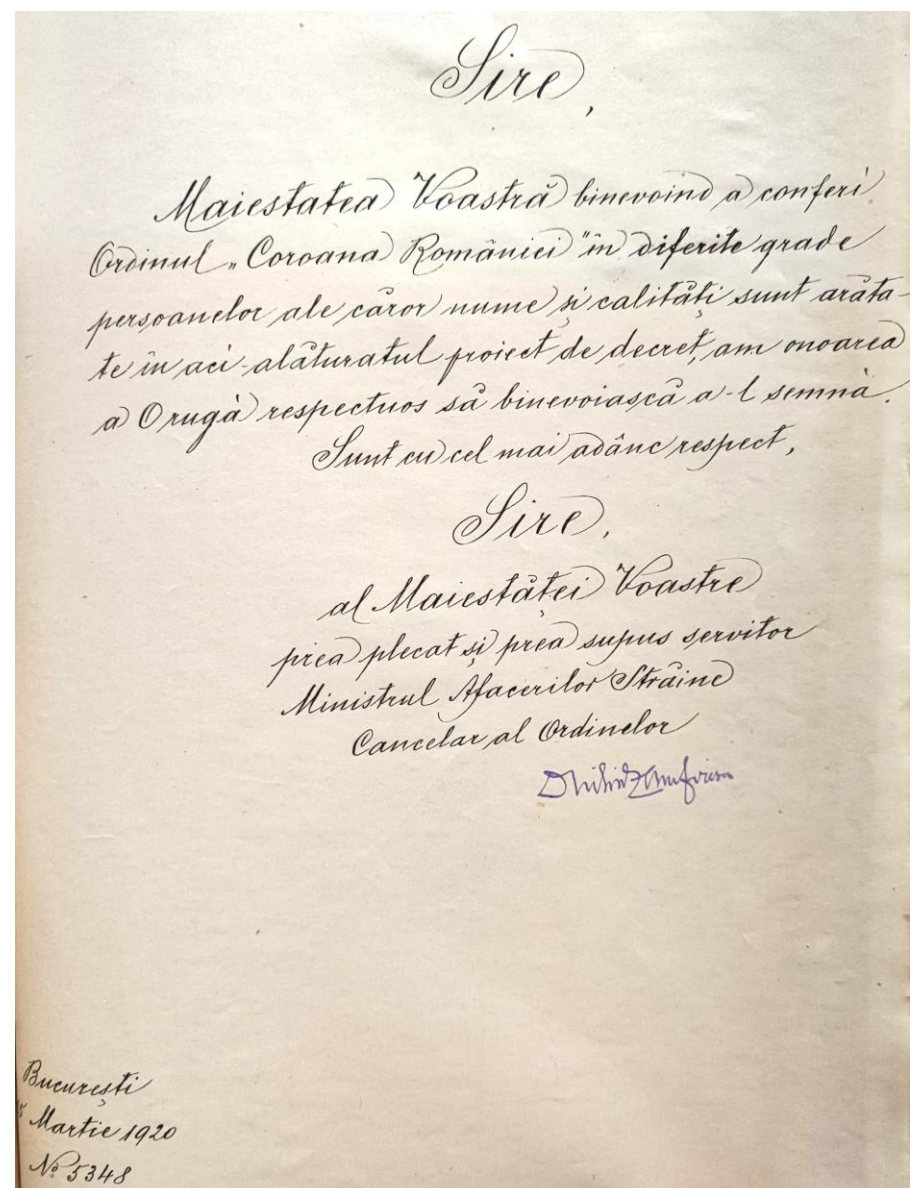 Sire,
Maiestatea Voastră binevoind a conferi
Ordinul „Coroana României” în diferite grade
persoanelor ale căror nume și calități sunt arăta-
te în aci-alăturatul proiect de decret, am onoarea
a O rugà respectuos să binevoiască a-l semnà.
Sunt cu cel mai adânc respect,
Sire,
al Maiestăței Voastre
prea plecat și prea supus servitor
Ministrul Afacerilor Străine
Cancelar al Ordinelor
București
Martie 1920
No 5348